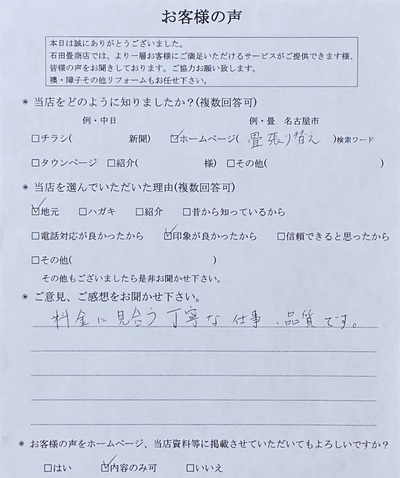 お客様の声
本日は誠にありがとうございました。
石田畳商店では、より一層お客様にご満足いただけるサービスがご提供できます様、
皆様の声をお聞きしております。ご協力お願い致します。
襖・障子その他リフォームもお任せ下さい。
◉ 当店をどのように知りましたか？(複数回答可)
例・中日 例・畳 名古屋市
□チラシ( 新聞) ☑ホームページ( 畳張り替え )検索ワード
□タウンページ □紹介( 様) □その他( )
◉ 当店を選んでいただいた理由(複数回答可)
☑地元 □ハガキ □紹介 □昔から知っているから
□電話対応が良かったから ☑印象が良かったから □信頼できると思ったから
□その他( )
その他もございましたら是非お聞かせ下さい。
◉ ご意見、ご感想をお聞かせ下さい。
料金に見合う丁寧な仕事、品質です。
◉ お客様の声をホームページ、当店資料等に掲載させていただいてもよろしいですか？
□はい ☑内容のみ可 □いいえ